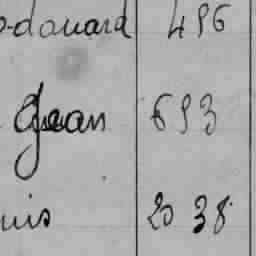 o-douard 496
Jean 693
uis 20 38